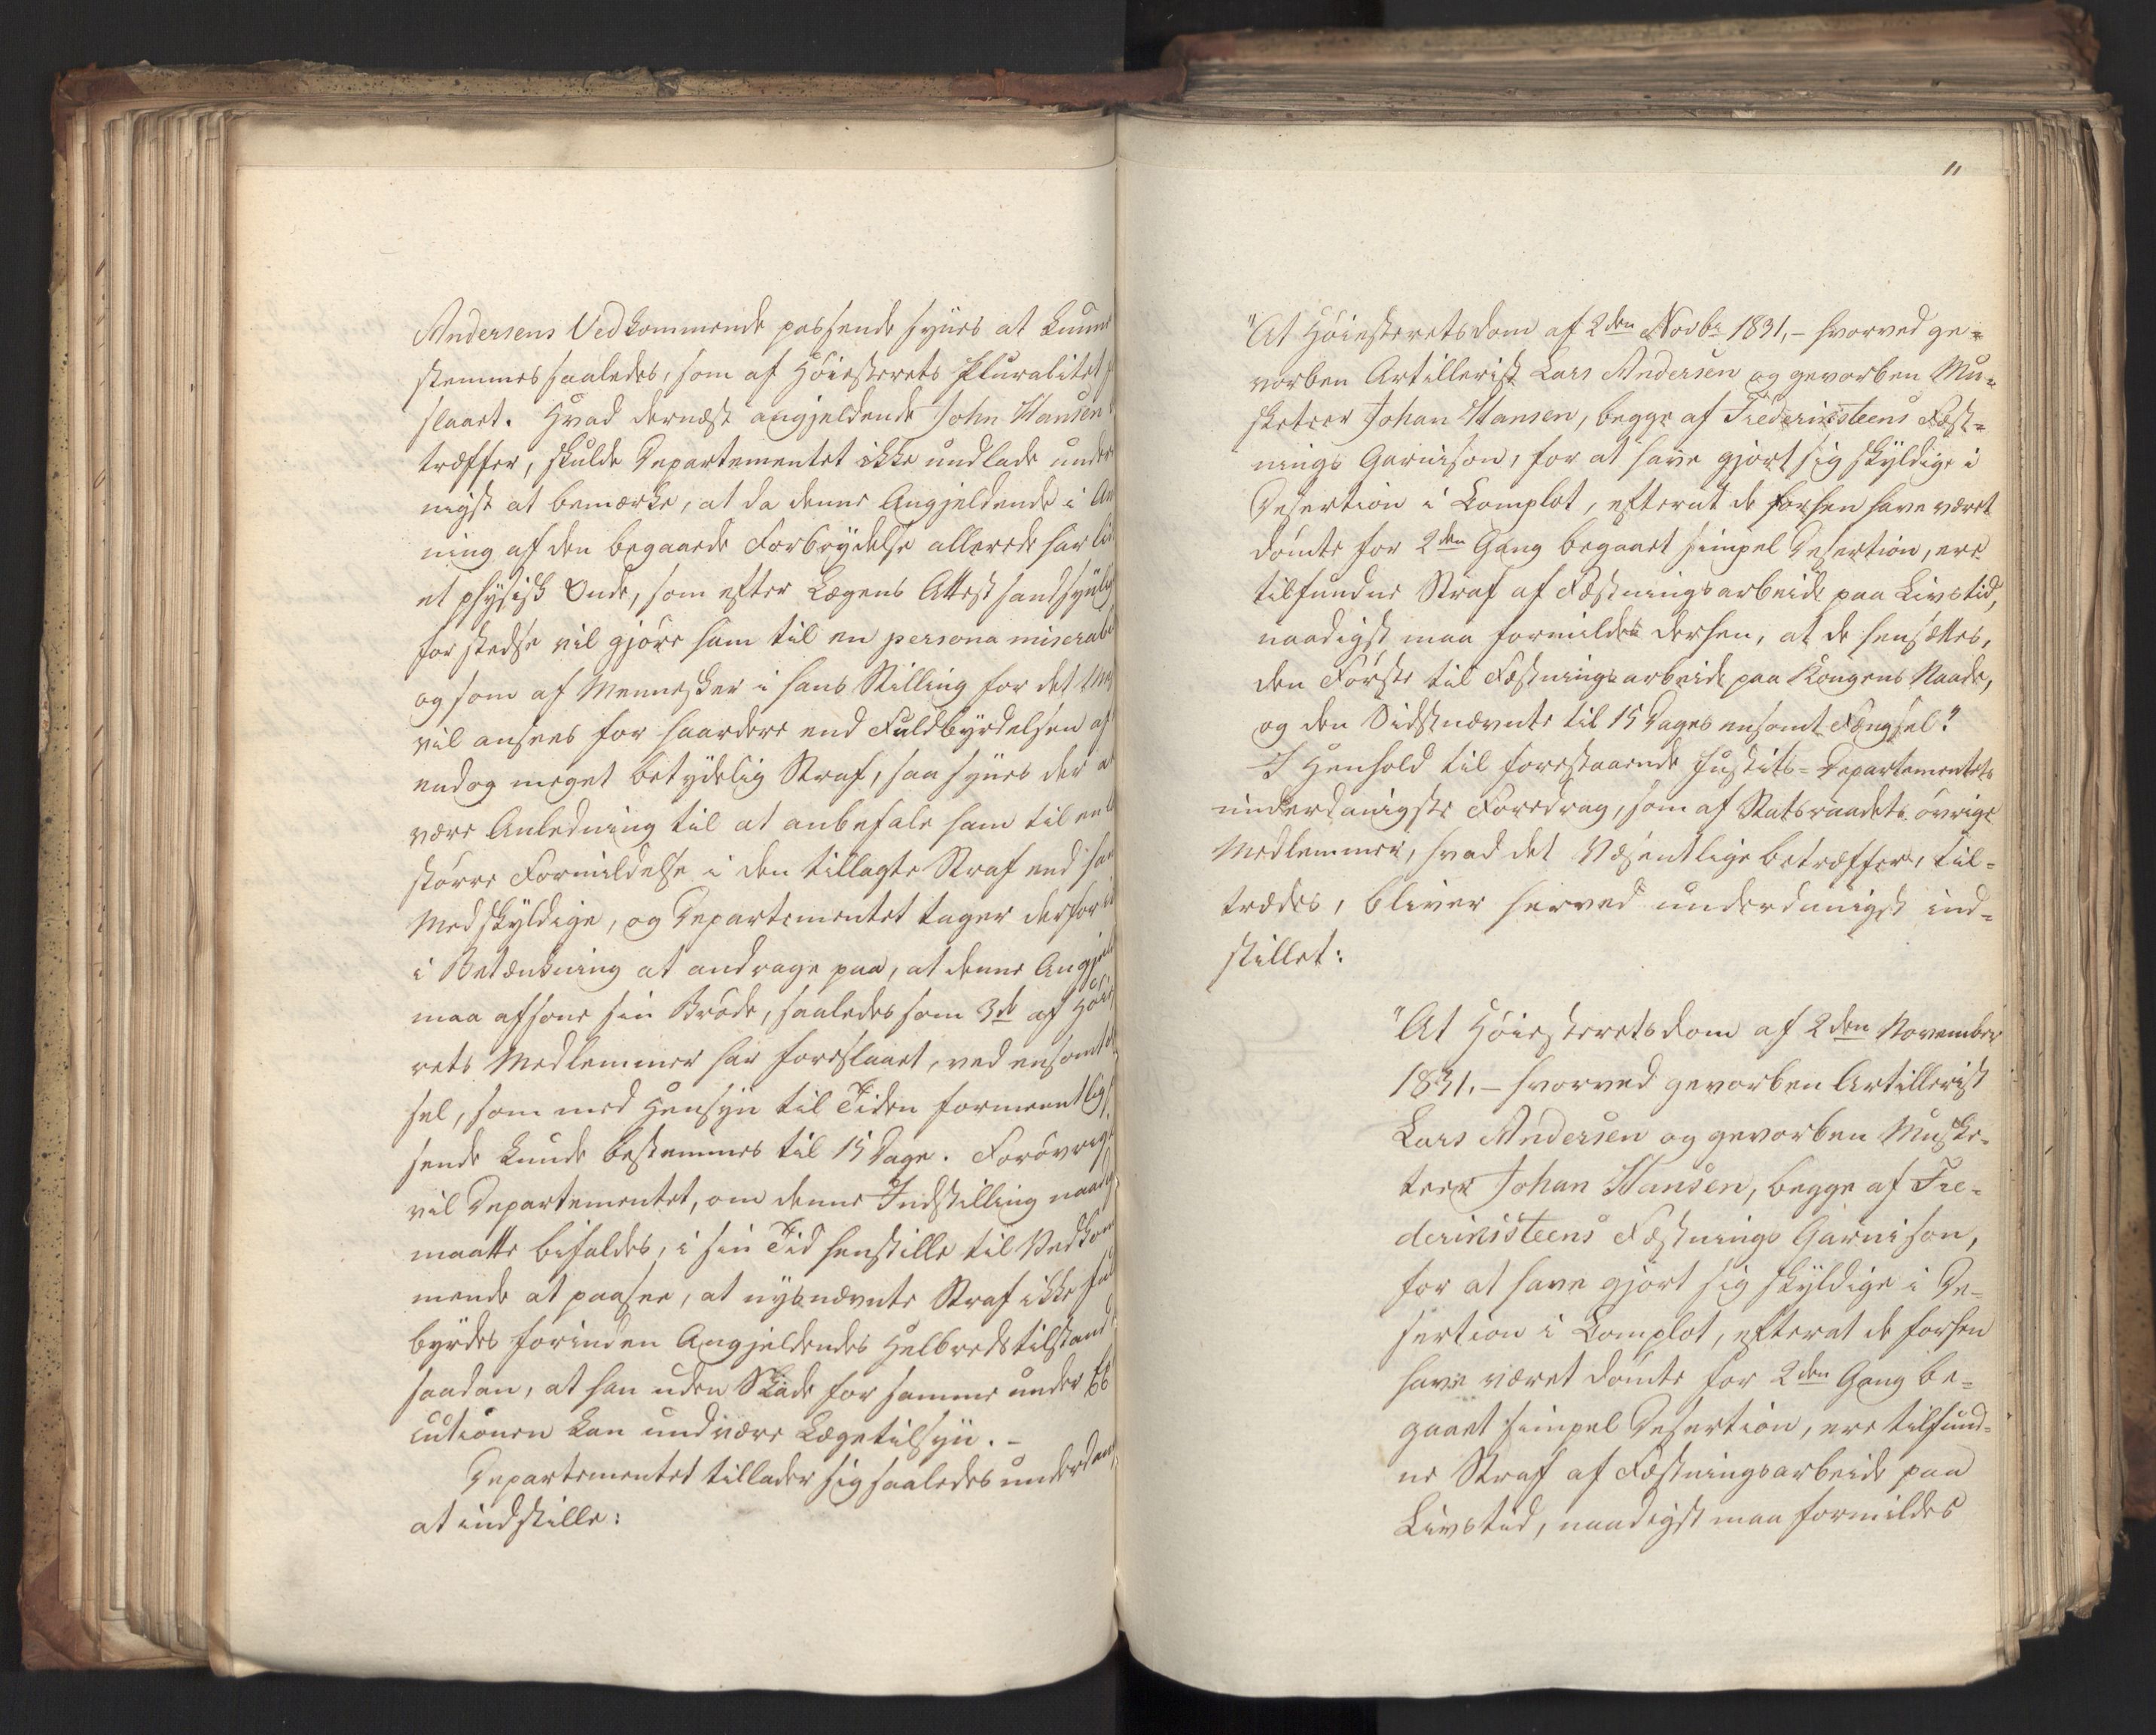 Andersens Vedkommende passende synes at kunne
stemmes saaledes, som af Høiesterets Pluralitet
slaaet. Hvad dernæst angjeldende John Hansen
træffer, skulde Departementet ikke undlade under
nigst at bemærke, at da denne Angjeldende i An
ning af den begaaede Forbrydelse allerede har
et physisk Onde, som efter Lægens Attest sandsynlig
for stedse vil gjøre ham til en persona miserabi
og som af Mennesker i hans Stilling for det
vil ansees for haardere end Fuldbyrdelsen af
endog meget betydelig Straf, saa synes der at
være Anledning til at anbefale ham til en
større Formildelse i den tillagte Straf end han
Medskyldige, og Departementet tager derfor
i Betænkning at andrage paa, at denne Angjeld
maa afsone sin Brøde, saaledes som 3de af Høie
rets Medlemmer har foreslaaet, ved ensomt
sel, som med Hensyn til Tiden formeentlig
sende kunde bestemmes til 15 Dage. Forøvrigt
vil Departementet, om denne Indstilling naadig
maatte bifaldes, i sin Tid henstille til Vedkom
mende at paasee, at nysnævnte Straf ikke ful
byrdes forinden Angjeldendes Helbredstilstand
saadan, at han uden Skade for samme under Ex
cutionen kan undvære Lægetilsyn. –
Departementet tillader sig saaledes underdan
at indstille:
11
"At Høiesteretsdom af 2den Novbr 1831, – hvorved ge=
vorben Artillerist Lars Andersen og gevorben Mu=
sketeer Johan Hansen, begge af Frederiksteens Fæst=
nings Garnison, for at have gjort sig skyldige i
Desertion i Complot, efterat de forhen have været
dømte for 2den Gang begaaet simpel Desertion, ere
tilfundne Straf af Fæstningsarbeide paa Livstid,
naadigst maa formildes derhen, at de hensættes,
den Første til Fæstningsarbeide paa Kongens Naade,
og den Sidstnævnte til 15 Dages ensomt Fængsel."
I Henhold til forestaaende Justits=Departementets
underdanigste Foredrag, som af Statsraadets øvrige
Medlemmer, hvad det Væsentlige betræffer, til=
trædes, bliver herved underdanigst ind=
stillet:
"At Høiesteretsdom af 2den November
1831. – hvorved gevorben Artillerist
Lars Andersen og gevorben Muske=
teer Johan Hansen, begge af Fre=
deriksteens Fæstnings Garnison,
for at have gjort sig skyldige i De=
sertion i Complot, efterat de forhen
have været dømte for 2den Gang be=
gaaet simpel Desertion, ere tilfund=
ne Straf af Fæstningsarbeide paa
Livstid, naadigst maa formildes